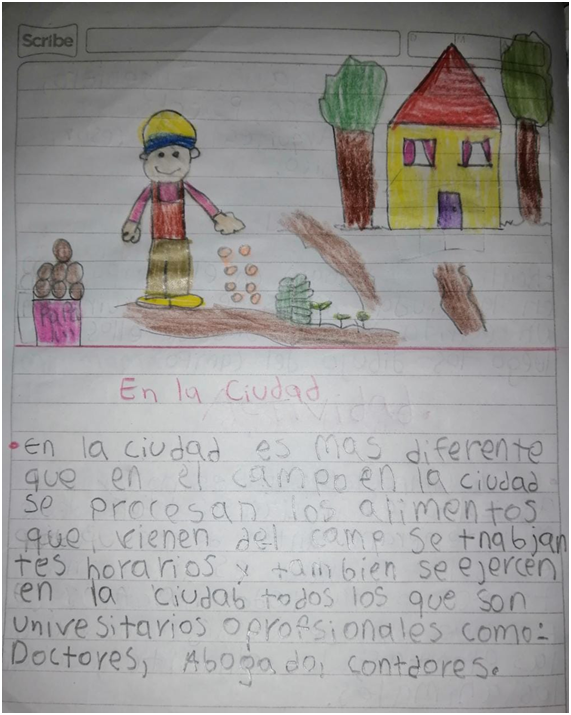 Scribe
En la Ciudad
• En la ciudad es mas diferente
que en el campo en la ciudad
se procesan los alimentos
que vienen del camp se tnabjan
tes horarios y tambien se ejercen
en la ciudab todos los que son
universitarios o profsionales como:
Doctores, Abogado, contdores.